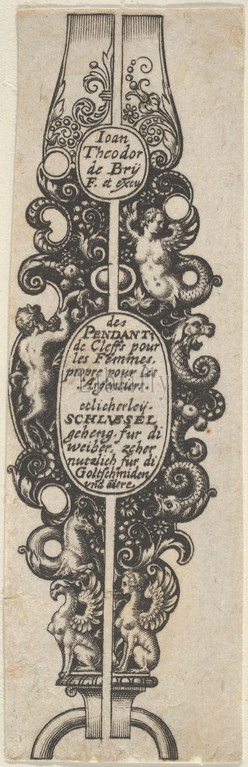 Ioan
Theodor
de Brÿ
F. et excu
des
PENDANT
de Cleffs pour
les Femmes.
propre pour les
Argentiers.
etlicherleÿ
SCHLVESEL
geheng fur di
weiber, zcher
nutzlich fur di
Goltschmiden
vnd andere